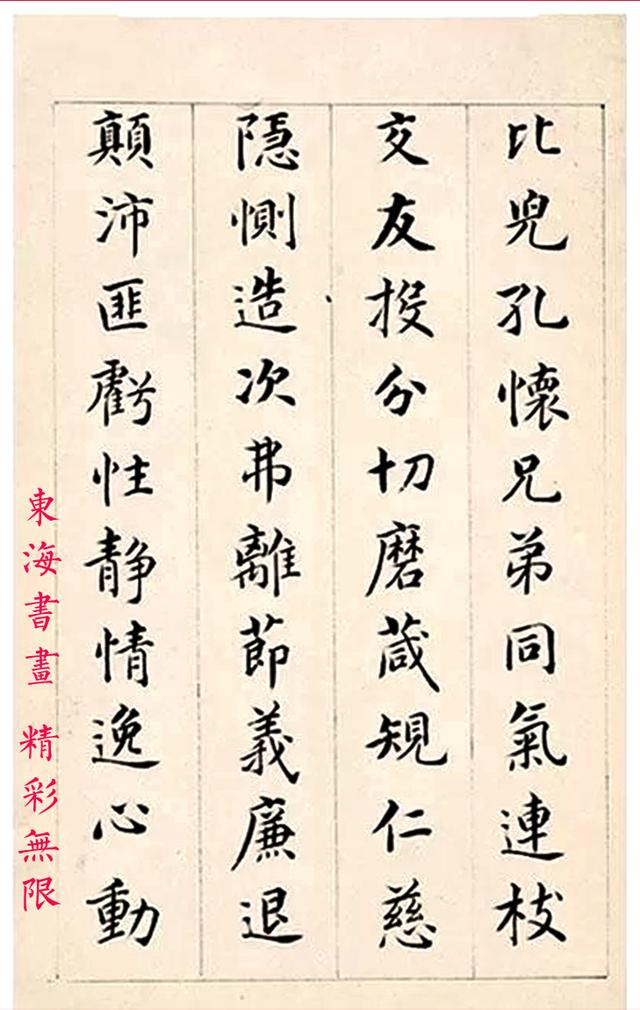 比兒孔懷兄弟同氣連枝
交友投分切磨葴規仁慈
隱惻造次弗離節義廉退
顛沛匪虧性静情逸心動
東海書畫 精彩無限